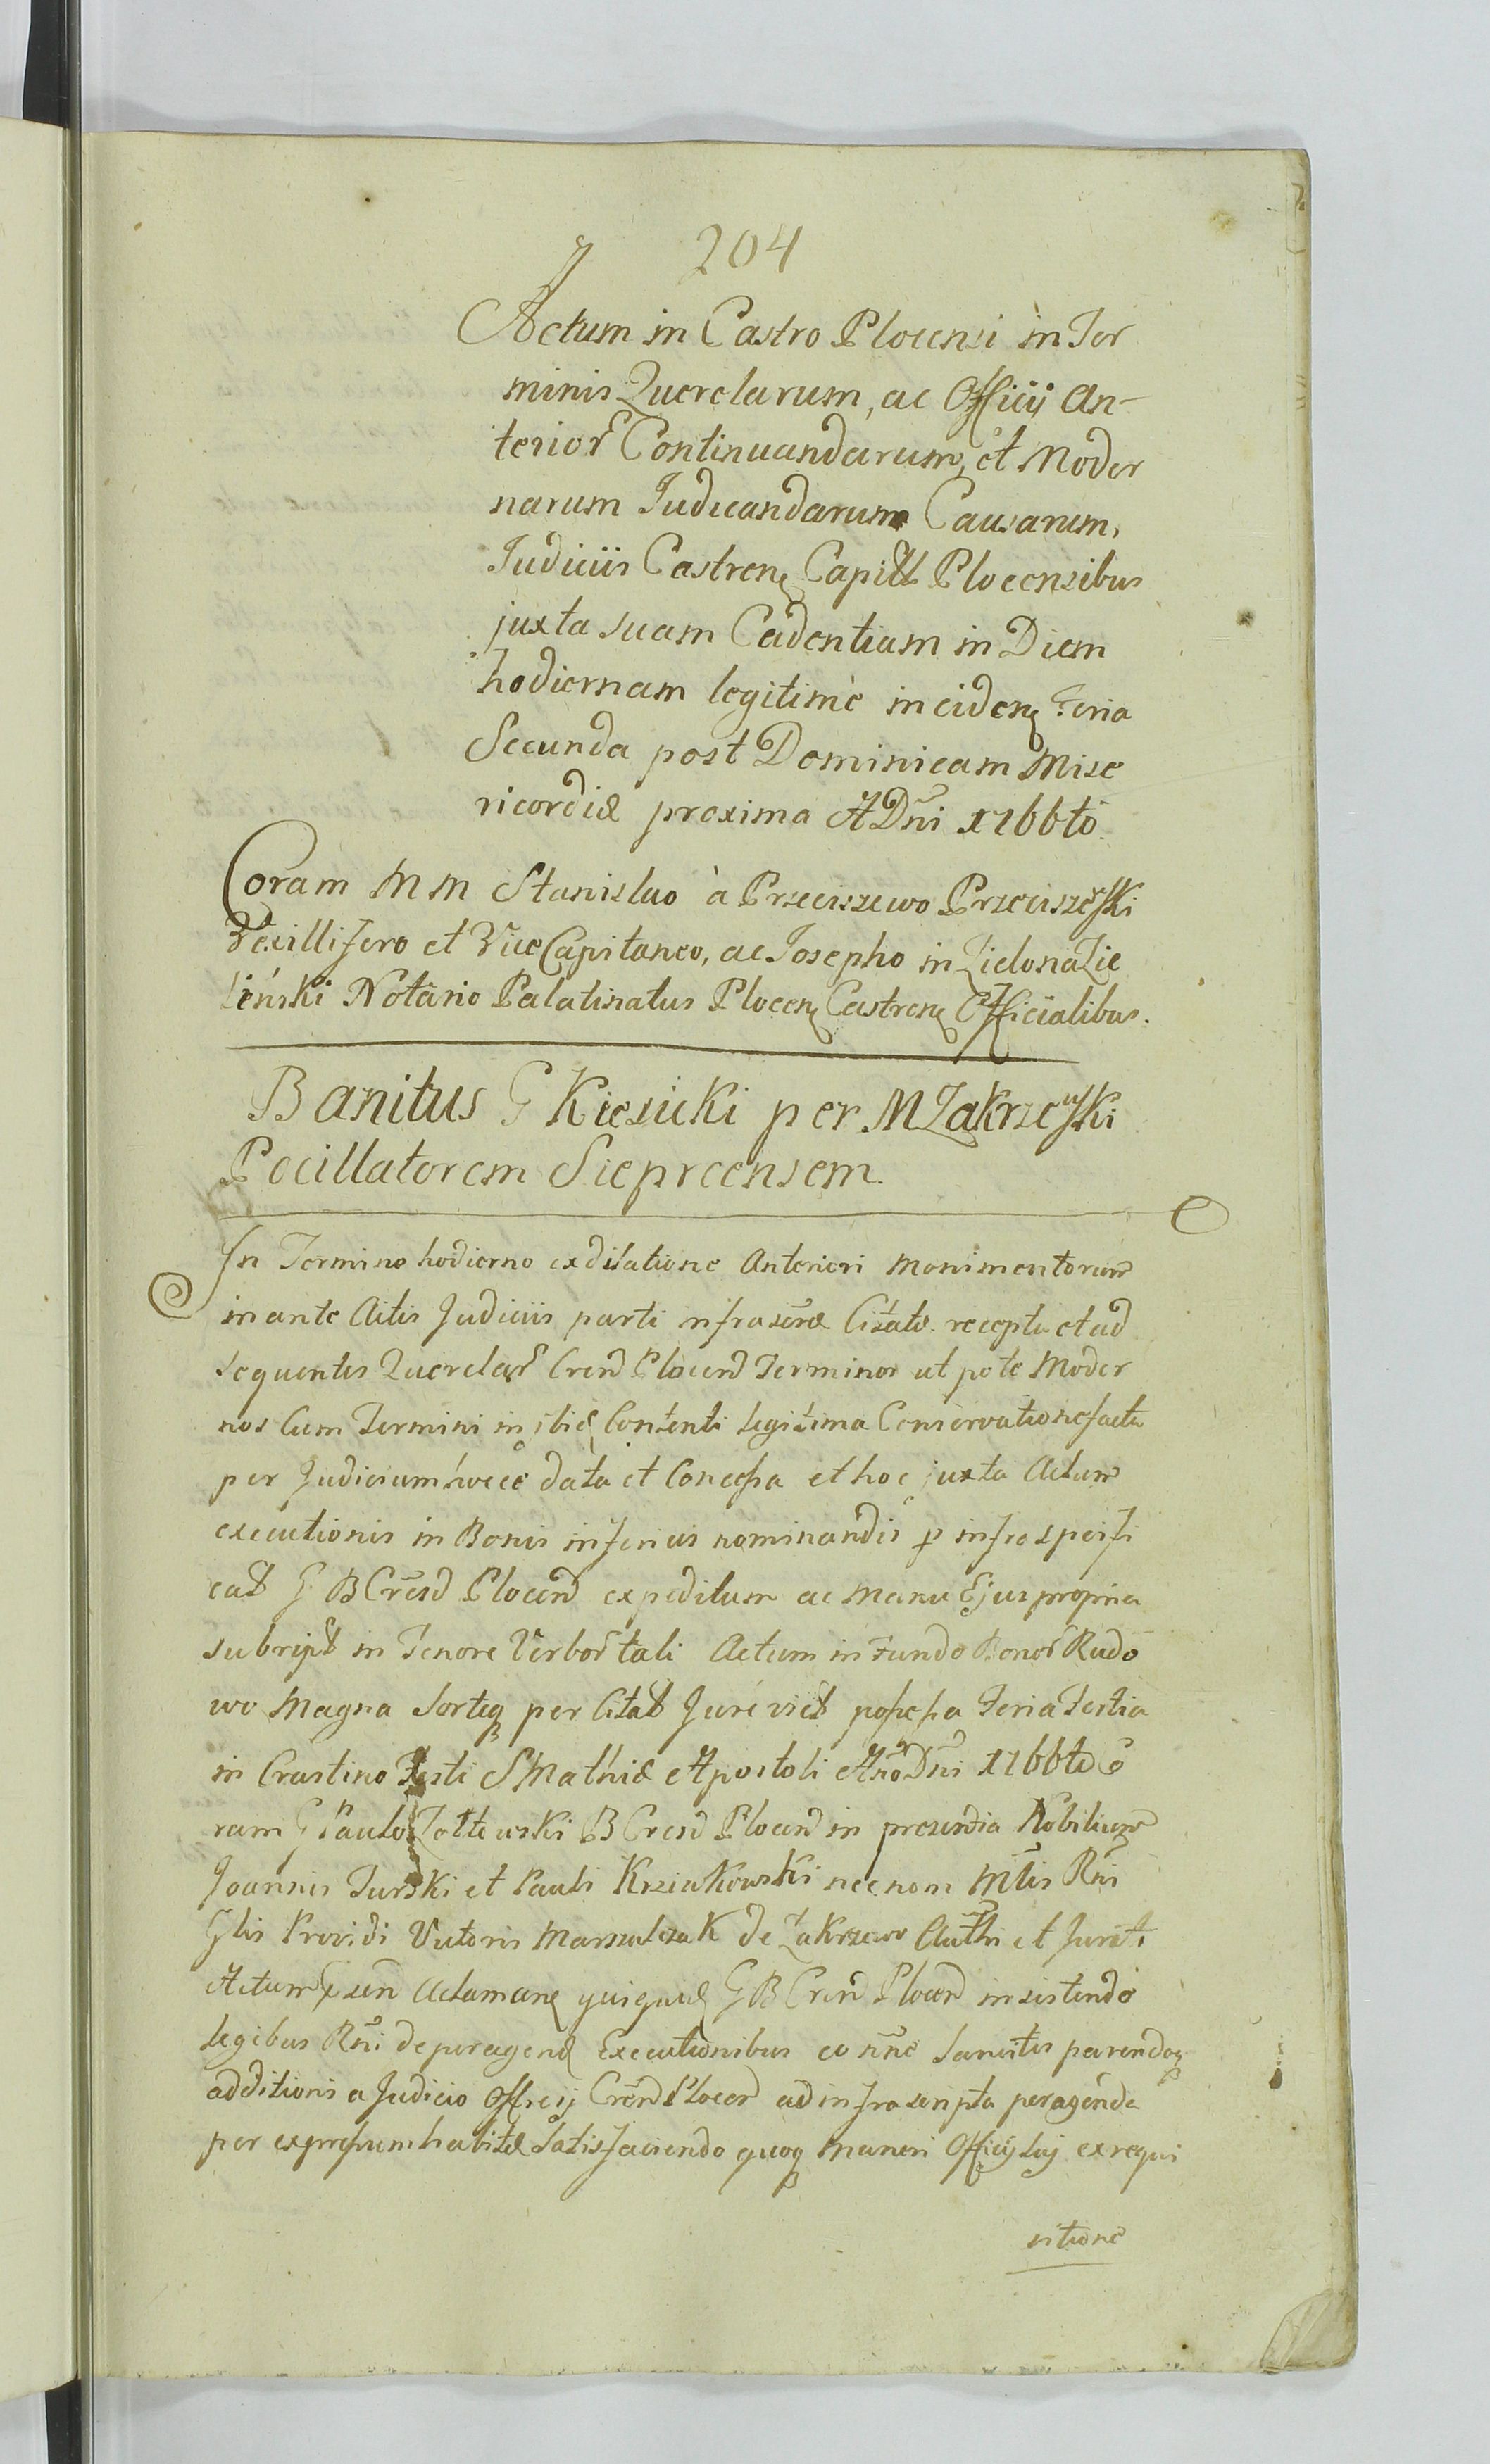 204
Actum in Castro Plocensi in Ter
minis Querelarum, ac Officij An-
terior Continuandarum, et Moder
narum Iudicandarum Causarum,
Iudiciis Castren Capitt Plocensibus
juxta suam Cadentiam in Diem
hodiernam legitimè inciden Feria
Secunda post Dominicam Mise
ricordiæ proxima A Dni 1766to
Coram M M Stanislao à Przeciszewo Przeciszewski
Vexillifero et ViceCapitaneo, ac Josepho in Zielona Zie
liński Notario Palatinatus Plocen Castren Officialibus.
Banitus G Kiesicki per M Zakrzewski
Pocillatorem Sieprcensem.
In Termino hodierno ex dilatione Anteriori Monimentorum
in ante Actis Judiciis parti infrascræ Citatæ recepta et ad
sequentes Querelar Cren Plocen Terminos ut pote Moder
nos Cum Termini in ibid Contenti legitima Conservatione facta
per Judicium hocce data et Concessa et hoc juxta Actum
executionis in Bonis inferius nominandis p infra speifi
cat G B Cresd Plocen expeditum ac manu Ejus propria
subript in Tenore Verbor tali Actum in Fundo Bonor Rudo
wo Magna Sorteq per Citat Jure vict possessa Feria Tertia
in Crastino Festi S Mathiæ Apostoli Ano Dni 1766to Co
ram G Paulo Zołtowski B Cresd Plocen in presentia Nobilium
Joannis Turski et Pauli Krzinkowski nec non Mlis Rni
Glis Providi Victoris Marszalczak de Zakrzewo Authi et Jurati
Actum sen Aclaman quiquid G B Cren Plocen insistendo
legibus Rni de peragend Executionibus eo nne Sancitis parendoq
additioni a Judicio Officij Cren Plocen ad infra scripta peragenda
per expressum habitæ Satisfaciendo quoq Muneri Officij sui ex requi
sitione